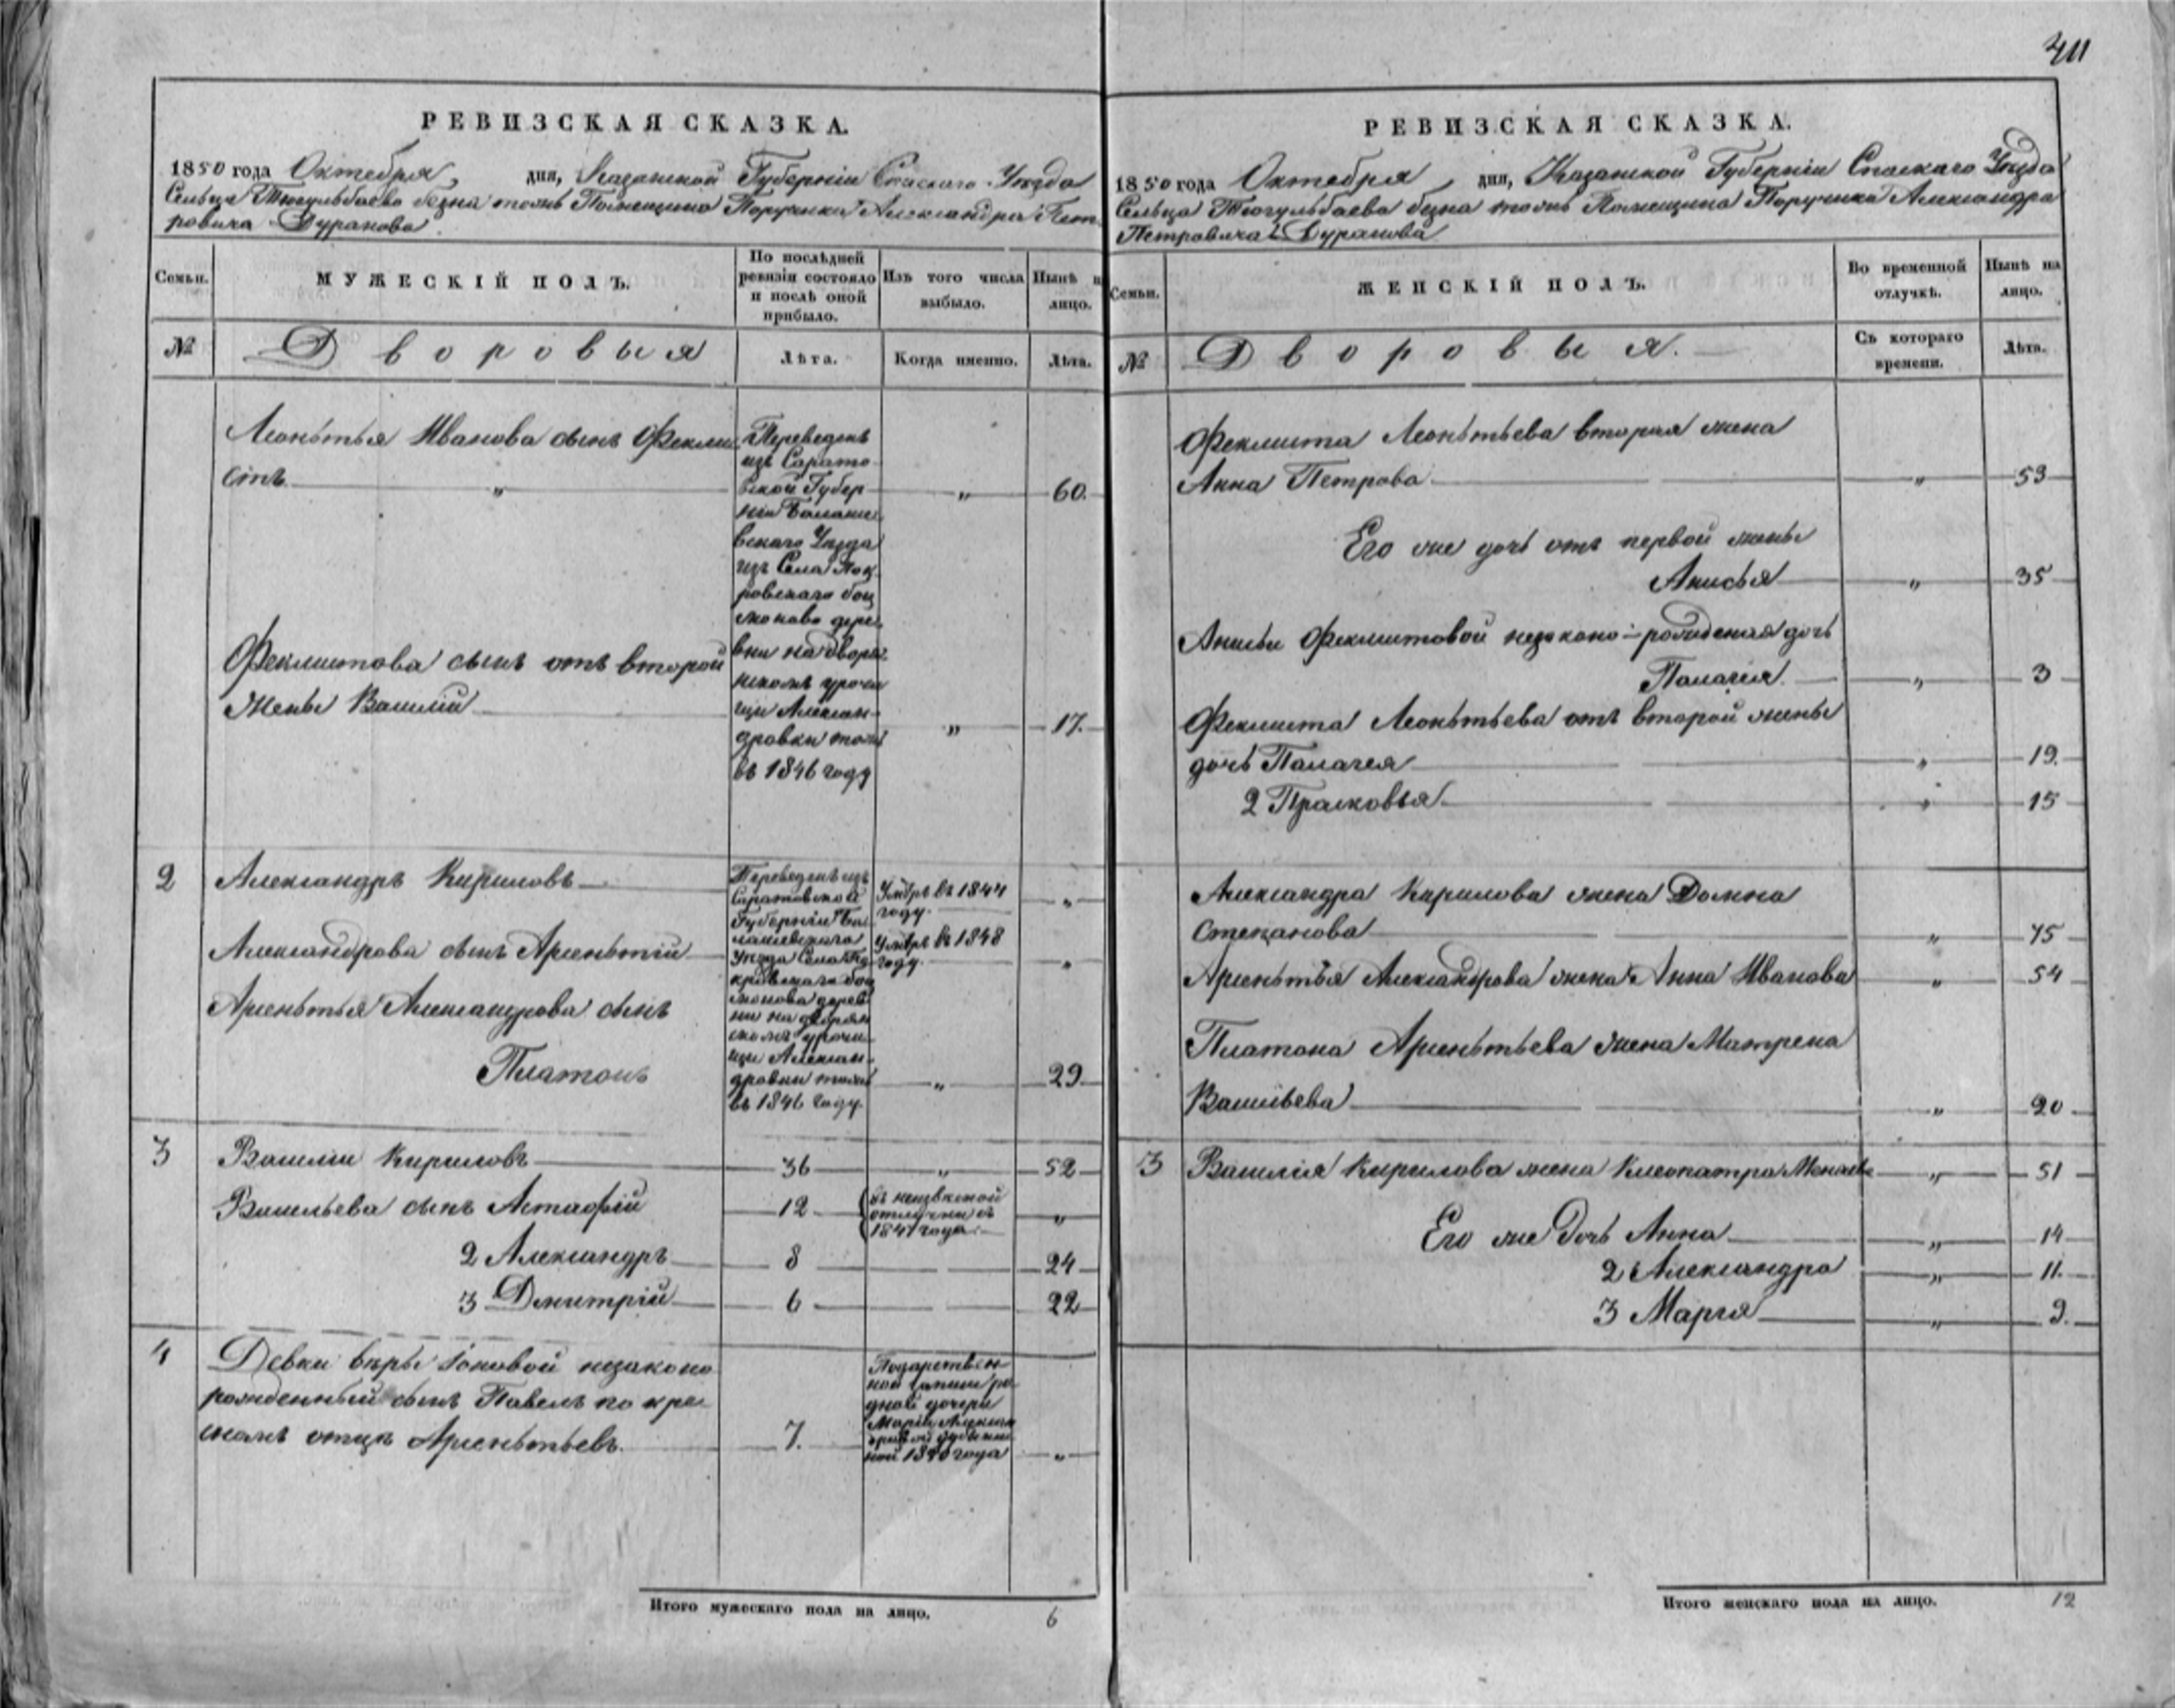 411
РЕВИЗСКАЯ СКАЗКА.
1850 года Октября дня, Казанской Губерніи Спаскаго Уезда
Сельца Тюгульбаева безна тожъ Помещика Поручика Александра Пет
ровича Дуранова
Семьи.
МУЖЕСКІЙ ПОЛЪ.
По послѣдней
ревизіи состояло
и послѣ оной
прибыло.
Изъ того числа
выбыло.
Нынѣ н
лицо.
№
Дворовыя
Лѣта.
Когда именно.
Лѣта.
Леонтья Иванова сынъ Фекли
стъ " 60.
Переведенъ
изъ Сарато
вской Губер
ніи Балаше
вскаго Уезда
изъ Села Пок
ровскаго боц
манова дере
вни на дворя
нскомъ урочи
щи Алексан
дровки тожъ
въ 1846 году
Феклистова сынъ отъ второй
Жены Василій " 17.
2
Александръ Кириловъ
Умеръ въ 1844
году. "
Александрова сынъ Арсентій
Умеръ въ 1848
году. "
Арсентья Александрова сынъ
Платонъ " 29
Переведенъ изъ
Саратовской
Губерніи Ба
лашевскаго
Уезда Села По
кровскаго боц
манова дерев
ни на дворян
скомъ урочи
щи Алексан
дровки тожъ
въ 1846 году.
3
Василій Кириловъ 36 " 52
Васильева сынъ Астафій 12
въ неизвесной
отлучки съ
1841 года. "
2 Александръ 8 24
3 Дмитрій 6 22
4
Девки веры Іоновой незаконо
рожденный сынъ Павелъ по кре
сномъ отцѣ Арсентьевъ. 7.
Подарствен
ной записи ро
дной дочери
Маріи Алексан
дровой
1840 года "
Итого мужескаго пола на лицо. 6
РЕВИЗСКАЯ СКАЗКА.
1850 года Октября дня, Казанской Губерніи Спаскаго Уезда
Сельца Тюгульбаева безна тожъ Помещика Поручика Александра
Петровича Дуранова
Семьи.
ЖЕНСКІЙ ПОЛЪ.
Во временной
отлучкѣ.
Нынѣ на
лицо.
№
Дворовыя.
Съ котораго
времени.
Лѣта.
Феклиста Леонтьева вторая жена
Анна Петрова " 53
Его же дочь отъ первой жены
Анисья " 35
Анисьи Феклистовой незаконо-рожденая дочь
Палагея. " 3
Феклиста Леонтьева отъ второй жены
дочь Палагея " 19.
2 Прасковья " 15
Александра Кирилова жена Домна
Степанова " 75
Арсентья Александрова жена Анна Иванова " 54
Платона Арсентьева жена Матрена
Васильева " 20
3
Василія Кирилова жена Клеопатра " 51
Его же Дочь Анна " 14
2 Александра " 11.
3 Марія " 9.
Итого женскаго пола на лицо. 12